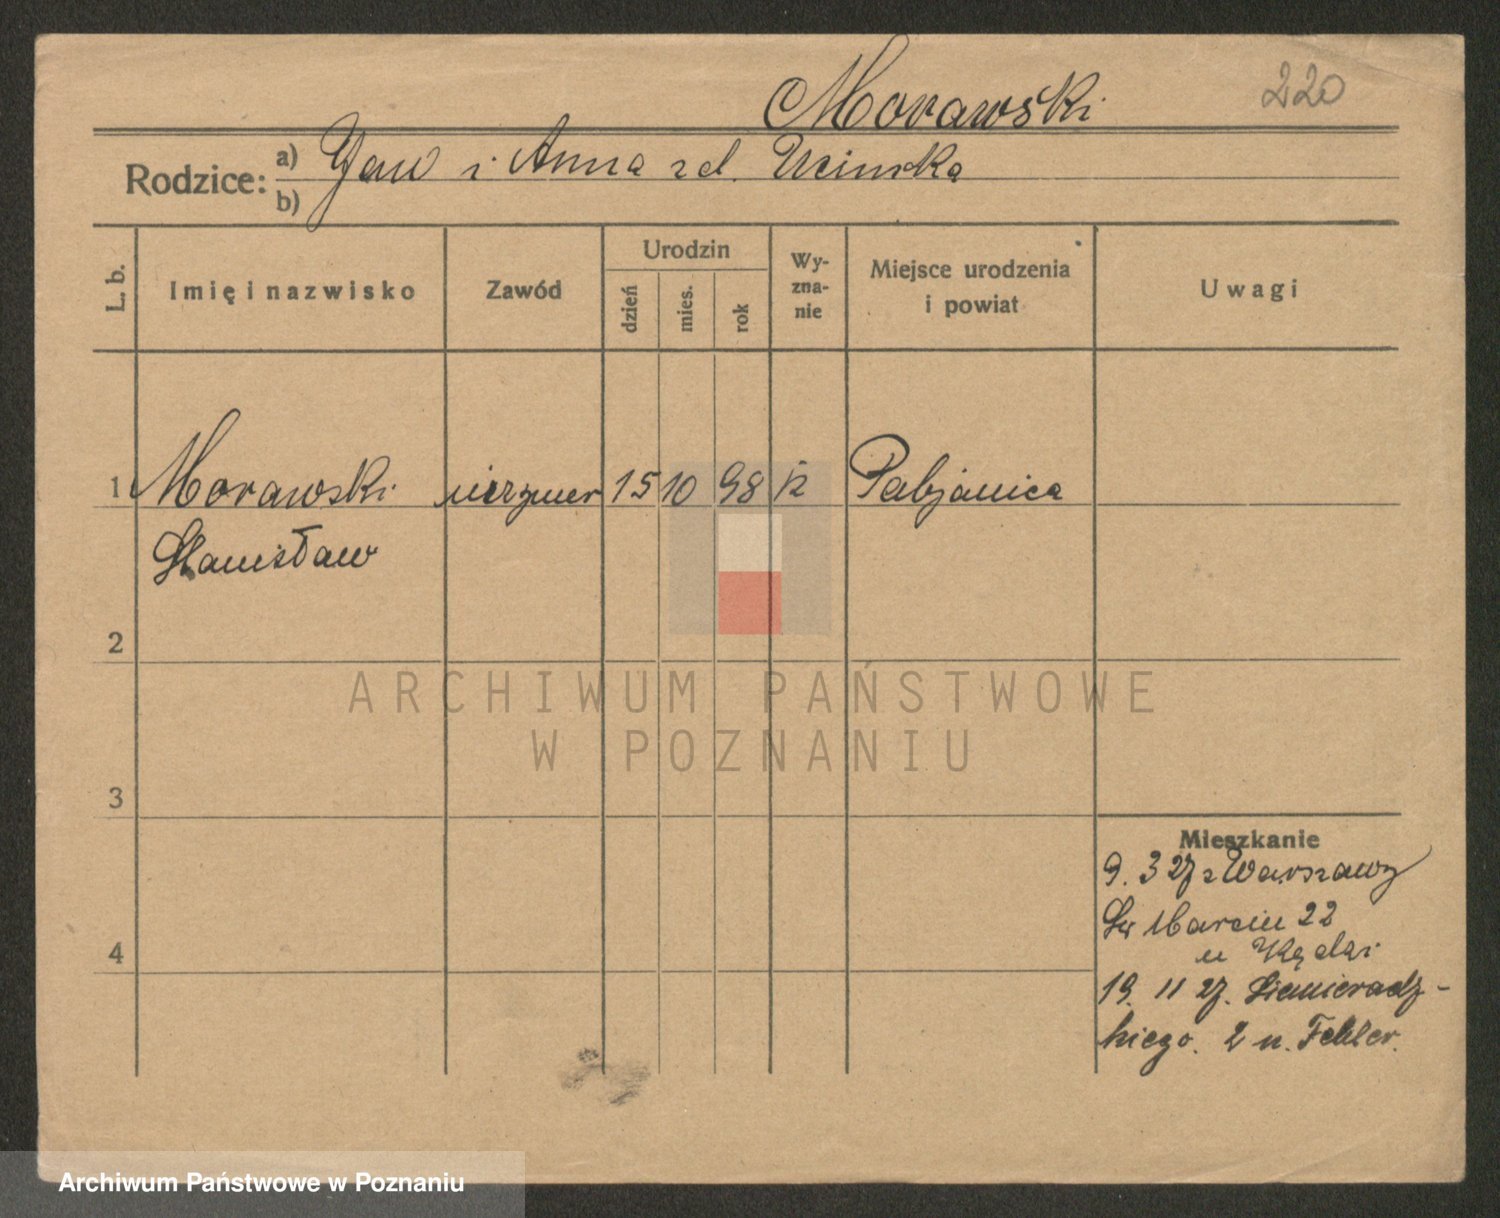 220
Morawski
Rodzice: a) Jan i Anna z d.
b)
L. b.
Imię i nazwisko
Zawód
Urodzin
dzień
mies.
rok
Wy-
zna-
nie
Miejsce urodzenia
i powiat
Uwagi
1 Morawski 15 10 98 k Pabjanice
Stanisław
2
3
4
Mieszkanie
9. 3 27 z Warszawy
Św Marcin 22
u
19. 11 27. Siemieradz-
kiego. 2 u.
ARCHIWUM PAŃSTWOWE
W POZNANIU
Archiwum Państwowe w Poznaniu